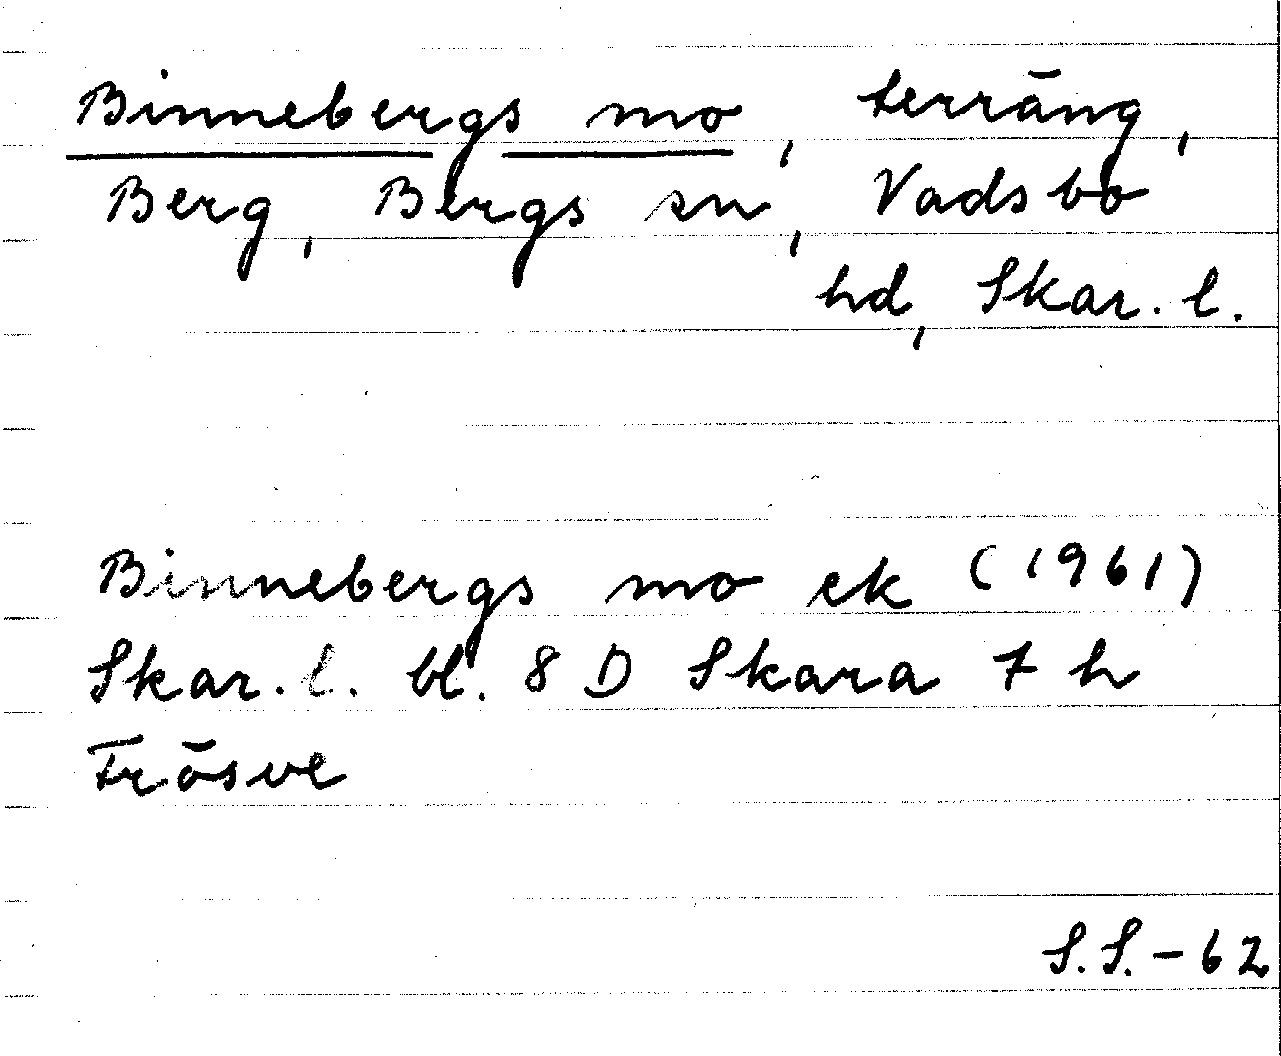 Binnebergs mo, terräng,
Berg, Bergs sn, Vadsbo
hd, Skar. l.
Binnebergs mo ek (1961)
Skar. l. bl. 8 D Skara 7 h
Frösve
S.S. - 62